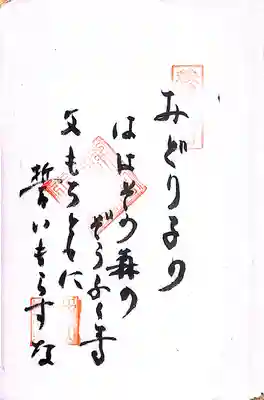 みどり子の
ははその森の
ぞうふく寺
父もろともに
誓いもらすな